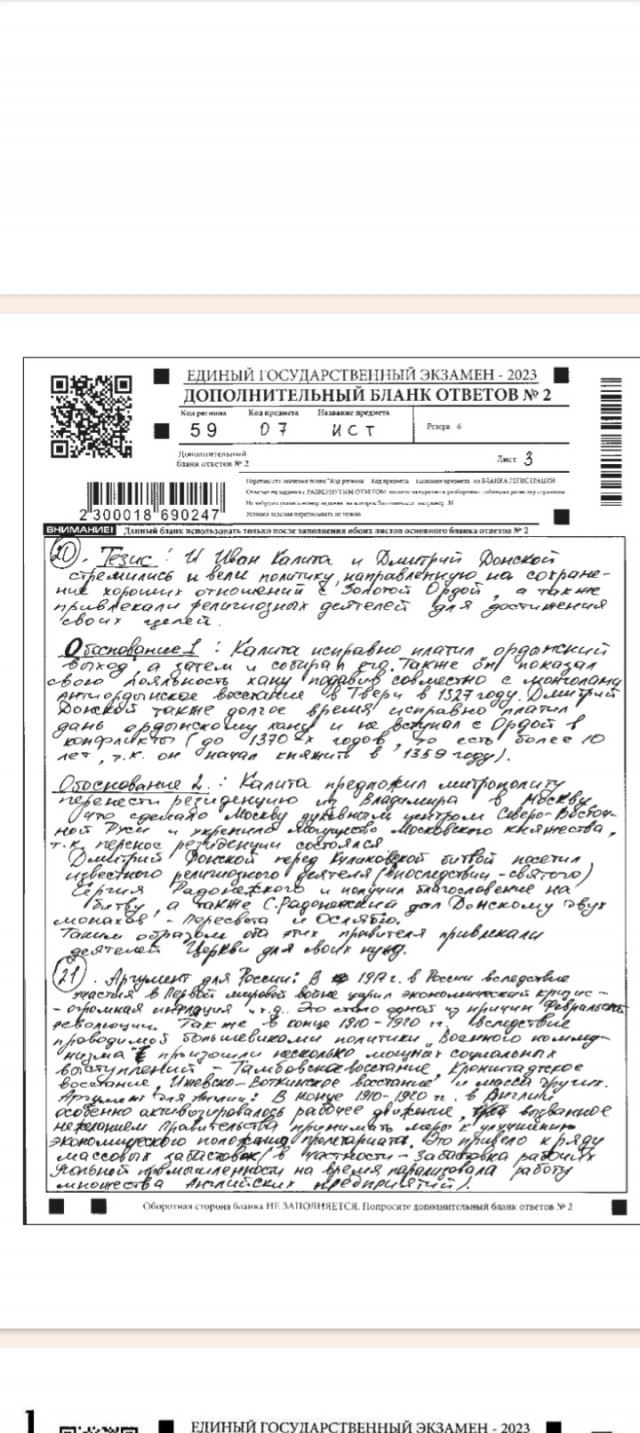 ЕДИНЫЙ ГОСУДАРСТВЕННЫЙ ЭКЗАМЕН - 2023
ДОПОЛНИТЕЛЬНЫЙ БЛАНК ОТВЕТОВ № 2
Код региона Код предмета Название предмета
59 07 ИСТ Резерв - 6
Дополнительный
бланк ответов № 2 Лист 3
2300018 690247
ВНИМАНИЕ! Данный бланк использовать только после заполнения обоих листов основного бланка ответов № 2
20. Тезис: И Иван Калита и Дмитрий Донской
стремились и вели политику, направленную на сохране-
ние хороших отношений с Золотой Ордой, а также
привлекали религиозных деятелей для достижения
своих целей.
Обоснование 1: Калита исправно платил ордынский
выход, а затем и собирал его. Также он показал
свою лояльность хану подавив совместно с монголами
антиордынское восстание в Твери в 1327 году. Дмитрий
Донской также долгое время исправно платил
дань ордынскому хану и не вступал с Ордой в
конфликты (до 1370-х годов, то есть более 10
лет, т.к. он начал княжить в 1359 году).
Обоснование 2.: Калита предложил митрополиту
перенести резиденцию из Владимира в Москву
что сделало Москву духовным центром Северо-Восточ-
ной Руси и укрепило могущество Московского княжества,
т.к. перенос резиденции состоялся
Дмитрий Донской перед Куликовской битвой посетил
известного религиозного деятеля (впоследствии - святого)
Сергия Радонежского и получил благословение на
битву, а также С.Радонежский дал Донскому двух
монахов - Пересвета и Ослябю.
Таким образом оба этих правителя привлекали
деятелей Церкви для своих нужд.
21. Аргумент для России: В 1917 г. в России вследствие
участия в Первой мировой войне царил экономический кризис -
- огромная инфляция и т.д.. Это стало одной из причин Февральской
революции. Также в конце 1910-1920 гг. вследствие
проводимой большевиками политики „Военного комму-
низма" произошли несколько мощных социальных
выступлений - Тамбовское восстание, Кронштадтское
восстание, Ижевско-Воткинское восстание и масса других.
Аргумент для Англии: В конце 1910-1920 гг. в Англии
особенно активизировалось рабочее движение, вызванное
нежеланием Правительства принимать меры к улучшению
экономического положения пролетариата. Это привело к ряду
массовых забастовок (в частности - Забастовка рабочих
Угольной промышленности на время парализовала работу
множества Английских предприятий).
Оборотная сторона бланка НЕ ЗАПОЛНЯЕТСЯ. Попросите дополнительный бланк ответов № 2
1
ЕДИНЫЙ ГОСУДАРСТВЕННЫЙ ЭКЗАМЕН - 2023